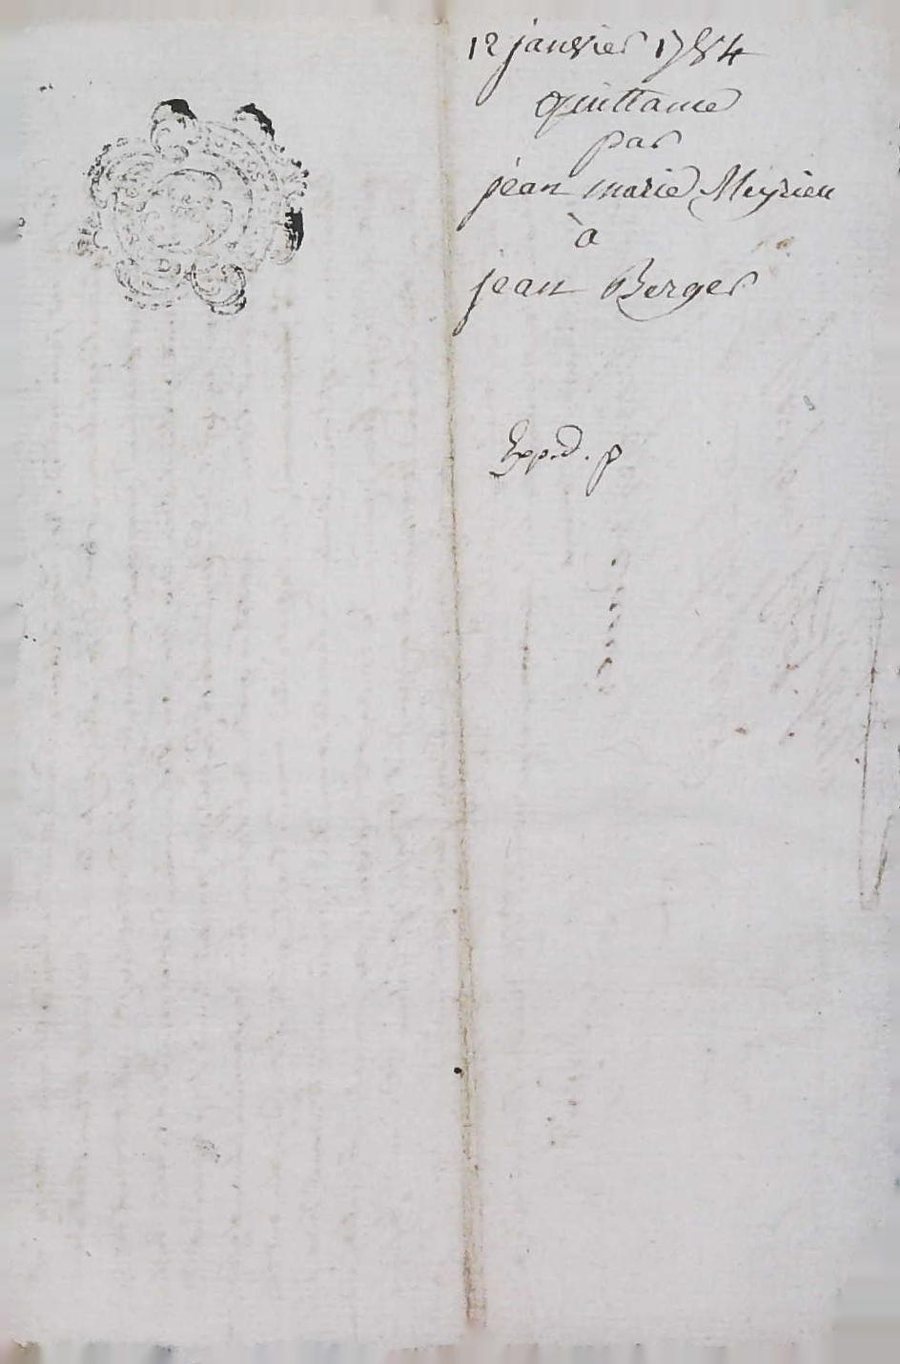 12 janvier 1784
quittance
par
jean marie Meyrieu
à
jean Berger
Exp.d. p